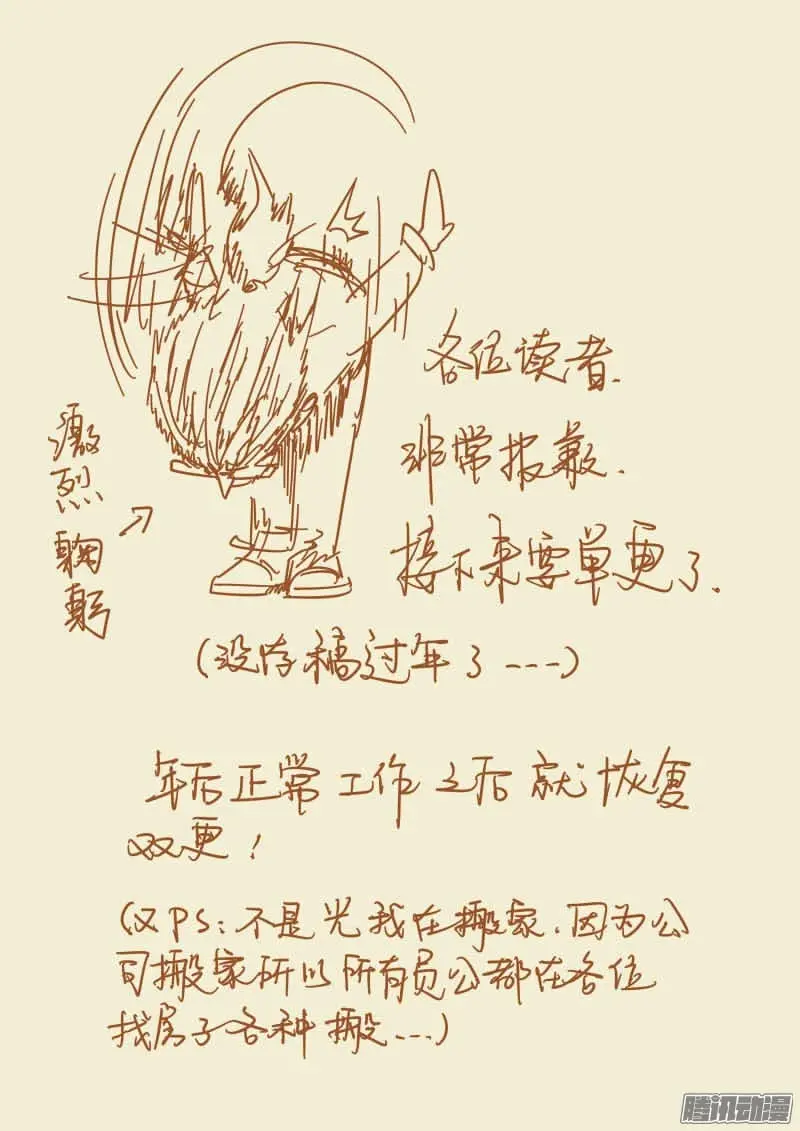 各位读者.
非常抱歉.
接下来要单更了.
激烈鞠躬
(没存稿过年了----)
年后正常工作之后就恢复
双更!
(又PS:不是光我在搬家.因为公
司搬家所以所有员公都在各位
找房子各种搬...)
腾讯动漫